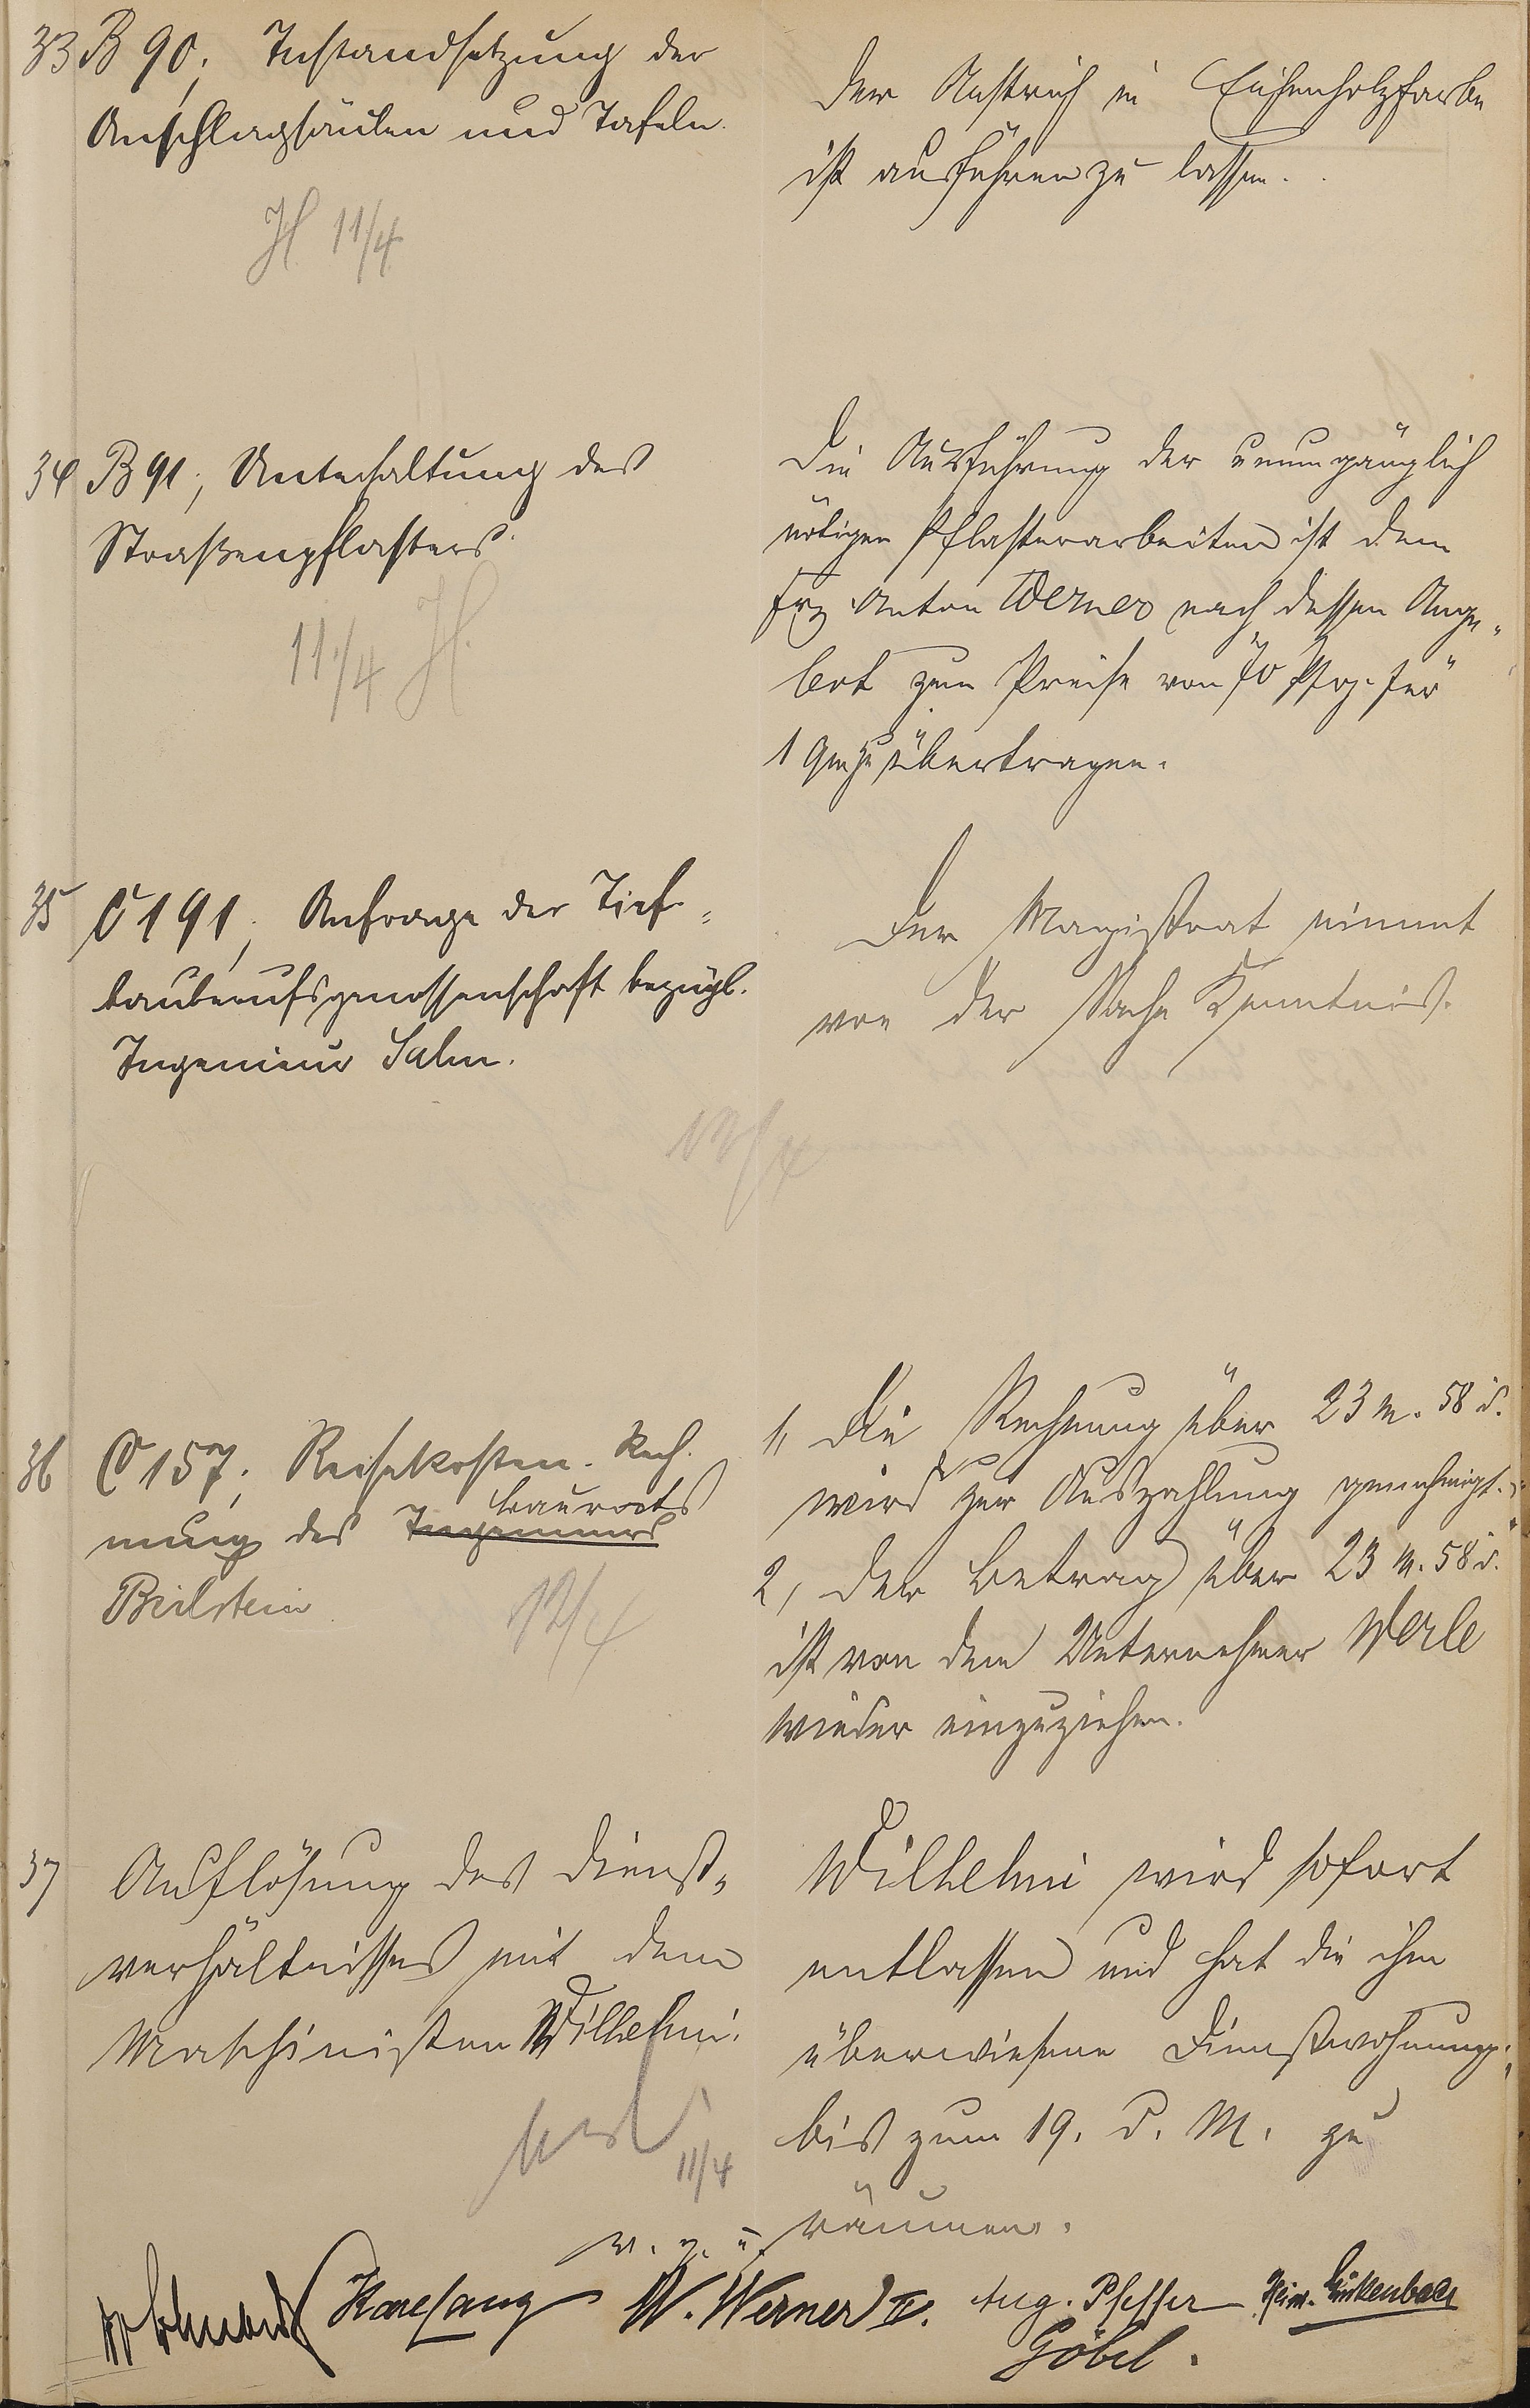 33 B 90; Instandsetzung der
Anschlagsäulen und Tafeln.
H. 11/4
Der Anstrich in Eichenholzfarbe
ist ausführen zu lassen.
34 B 91; Unterhaltung des
Straßenpflasters.
11./4 H.
Die Ausführung der unumgänglich
nötigen Pflasterarbeiten ist dem
Frz. Anton Werner nach dessen Ange-
bot zum Preise von 70 Pfg. für
1 qm zu übertragen.
35 C 191; Anfrage der Tief-
bauberufsgenossenschaft bezügl.
Ingenieur Salm.
Der Magistrat nimmt
von der Sache Kenntnis.
36 C 157; Reisekosten-Rech-
nung des Ingenieurs Baurats
Bielstein
12/4
1, Die Rechnung über 23 M. 58 d.
wird zur Auszahlung genehmigt.
2, Der Betrag über 23 M. 58 d.
ist von dem Unternehmer Werle
wieder einzuziehen.
37 Auflösung des Dienst-
verhältnisses mit dem
Maschinisten Wilhelmi.
11/4
Wilhelmi wird sofort
entlassen und hat die ihm
überwiesene Dienstwohnung
bis zum 19. d. M. zu
räumen.
v. g. u.
W. Werner II. Aug. Pfeffer
Göbel.